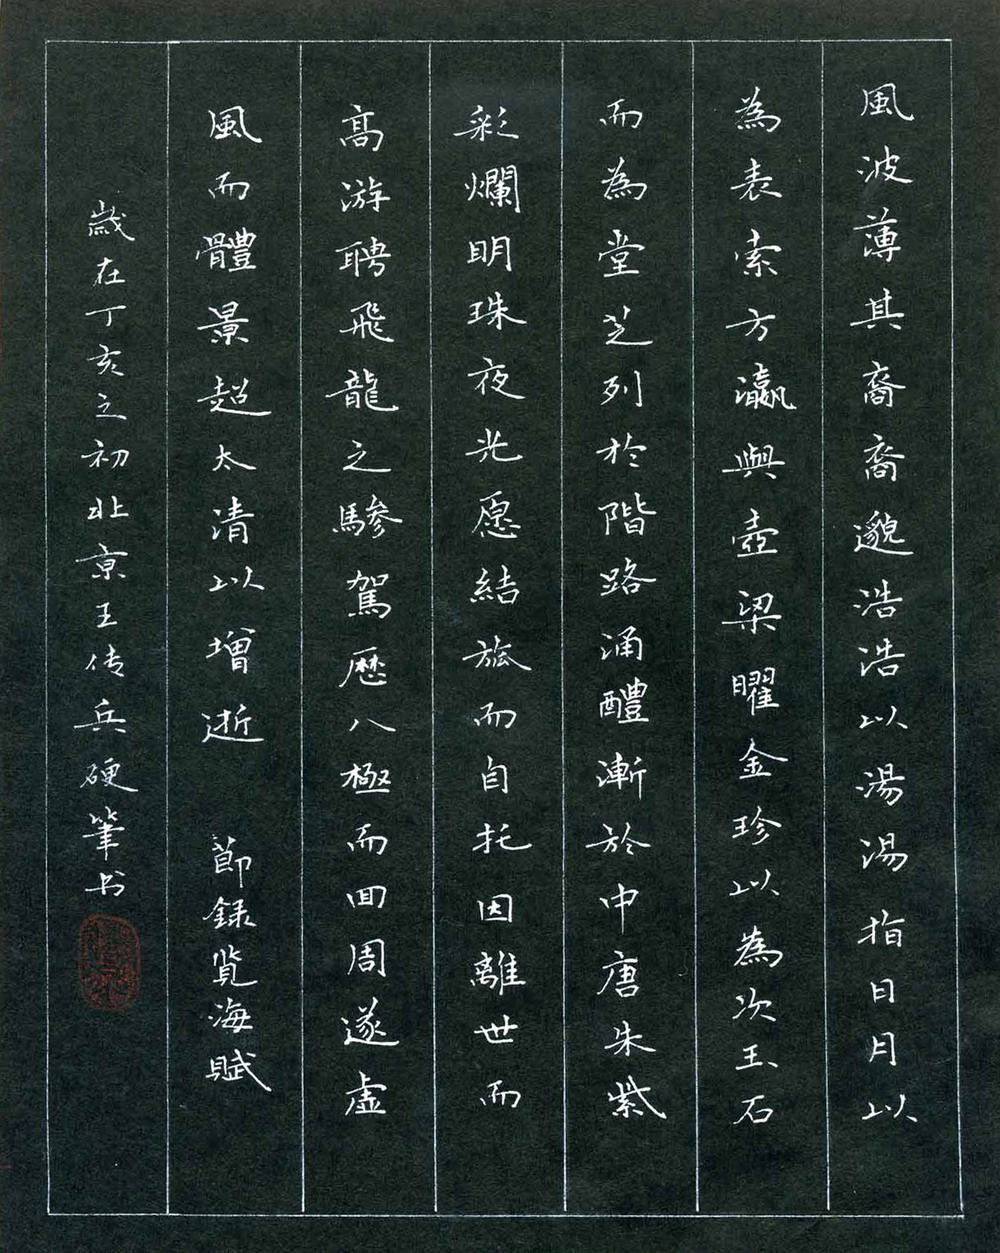 風波薄其裔裔邈浩浩以湯湯指日月以
為表索方瀛與壺梁曜金珍以為次玉石
而為堂芝列於階路涌醴漸於中唐朱紫
彩爛明珠夜光愿結旅而自托因離世而
高游聘飛龍之驂駕歷八極而回周遂虛
風而體景超太清以增逝 節録覧海賦
歲在丁亥之初北京王传兵硬筆书